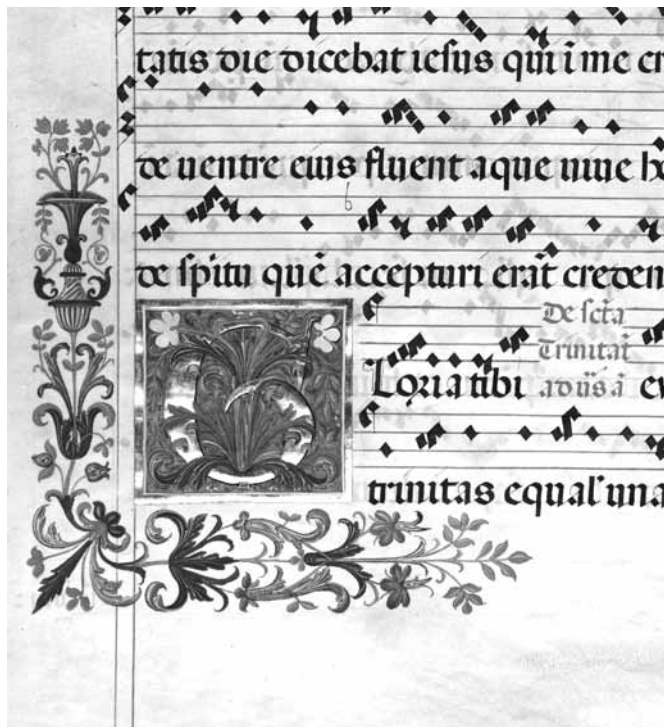 tatis die dicebat iesus qui ī me cr
de uentre eius fluent aque uiue h
de spitu quē accepturi erāt creden
De scta
Trinitat̄
G Loria tibi ad ūs ā e
trinitas equal' una